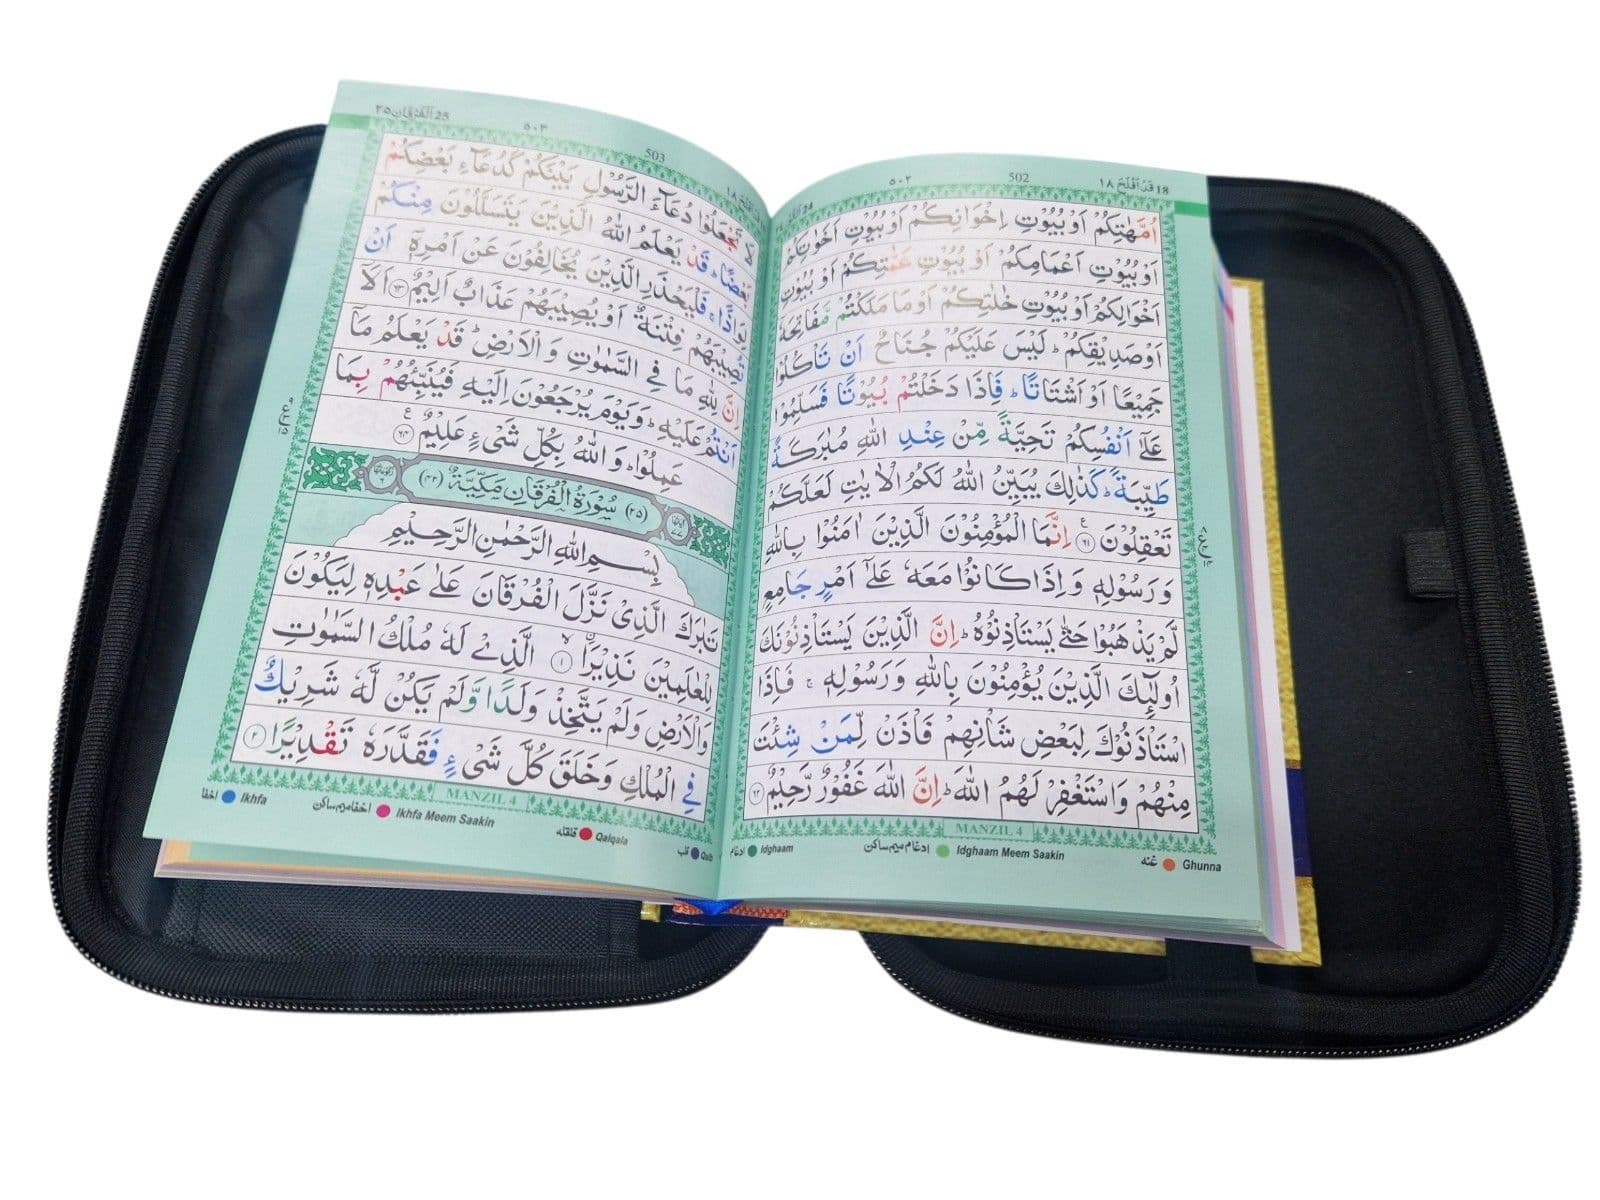 18 قَدْ اَفْلَحَ ١٨
502
٥٠٢
اُمَّهٰتِكُمْ اَوْ بُيُوْتِ اِخْوَانِكُمْ اَوْ بُيُوْتِ اَخَوٰتِكُمْ
اَوْ بُيُوْتِ اَعْمَامِكُمْ اَوْ بُيُوْتِ عَمّٰتِكُمْ اَوْ بُيُوْتِ
اَخْوَالِكُمْ اَوْ بُيُوْتِ خٰلٰتِكُمْ اَوْ مَا مَلَكْتُمْ مَّفَاتِحَهٗۤ
اَوْ صَدِيْقِكُمْ ؕ لَيْسَ عَلَيْكُمْ جُنَاحٌ اَنْ تَاْكُلُوْا
جَمِيْعًا اَوْ اَشْتَاتًا ؕ فَاِذَا دَخَلْتُمْ بُيُوْتًا فَسَلِّمُوْا
عَلٰۤى اَنْفُسِكُمْ تَحِيَّةً مِّنْ عِنْدِ اللّٰهِ مُبٰرَكَةً
طَيِّبَةً ؕ كَذٰلِكَ يُبَيِّنُ اللّٰهُ لَكُمُ الْاٰيٰتِ لَعَلَّكُمْ
تَعْقِلُوْنَ ۟ ٦١ اِنَّمَا الْمُؤْمِنُوْنَ الَّذِيْنَ اٰمَنُوْا بِاللّٰهِ
وَرَسُوْلِهٖ وَاِذَا كَانُوْا مَعَهٗ عَلٰۤى اَمْرٍ جَامِعٍ
لَّمْ يَذْهَبُوْا حَتّٰى يَسْتَاْذِنُوْهُ ؕ اِنَّ الَّذِيْنَ يَسْتَاْذِنُوْنَكَ
اُولٰٓئِكَ الَّذِيْنَ يُؤْمِنُوْنَ بِاللّٰهِ وَرَسُوْلِهٖ ۚ فَاِذَا
اسْتَاْذَنُوْكَ لِبَعْضِ شَاْنِهِمْ فَاْذَنْ لِّمَنْ شِئْتَ
مِنْهُمْ وَاسْتَغْفِرْ لَهُمُ اللّٰهَ ؕ اِنَّ اللّٰهَ غَفُوْرٌ رَّحِيْمٌ ٦٢
MANZIL 4
غنه Ghunna
ادغام ميم ساكن Idghaam Meem Saakin
ادغام Idghaam
503
٥٠٣
25 اَلْفُرْقَان ٢٥
لَا تَجْعَلُوْا دُعَآءَ الرَّسُوْلِ بَيْنَكُمْ كَدُعَآءِ بَعْضِكُمْ
بَعْضًا ؕ قَدْ يَعْلَمُ اللّٰهُ الَّذِيْنَ يَتَسَلَّلُوْنَ مِنْكُمْ
لِوَاذًا ۚ فَلْيَحْذَرِ الَّذِيْنَ يُخَالِفُوْنَ عَنْ اَمْرِهٖۤ اَنْ
تُصِيْبَهُمْ فِتْنَةٌ اَوْ يُصِيْبَهُمْ عَذَابٌ اَلِيْمٌ ٦٣ اَلَاۤ
اِنَّ لِلّٰهِ مَا فِي السَّمٰوٰتِ وَالْاَرْضِ ؕ قَدْ يَعْلَمُ مَاۤ
اَنْتُمْ عَلَيْهِ ؕ وَيَوْمَ يُرْجَعُوْنَ اِلَيْهِ فَيُنَبِّئُهُمْ بِمَا
عَمِلُوْا ؕ وَاللّٰهُ بِكُلِّ شَىْءٍ عَلِيْمٌ ٦٤
(٢٥) سُوْرَةُ الْفُرْقَانِ مَكِّيَّةٌ (٤٢)
بِسْمِ اللّٰهِ الرَّحْمٰنِ الرَّحِيْمِ
تَبٰرَكَ الَّذِيْ نَزَّلَ الْفُرْقَانَ عَلٰى عَبْدِهٖ لِيَكُوْنَ
لِلْعٰلَمِيْنَ نَذِيْرًا ١ الَّذِيْ لَهٗ مُلْكُ السَّمٰوٰتِ
وَالْاَرْضِ وَلَمْ يَتَّخِذْ وَلَدًا وَّلَمْ يَكُنْ لَّهٗ شَرِيْكٌ
فِي الْمُلْكِ وَخَلَقَ كُلَّ شَىْءٍ فَقَدَّرَهٗ تَقْدِيْرًا ٢
MANZIL 4
اخفا Ikhfa
اخفا ميم ساكن Ikhfa Meem Saakin
قلقله Qalqala
قلب Qalb